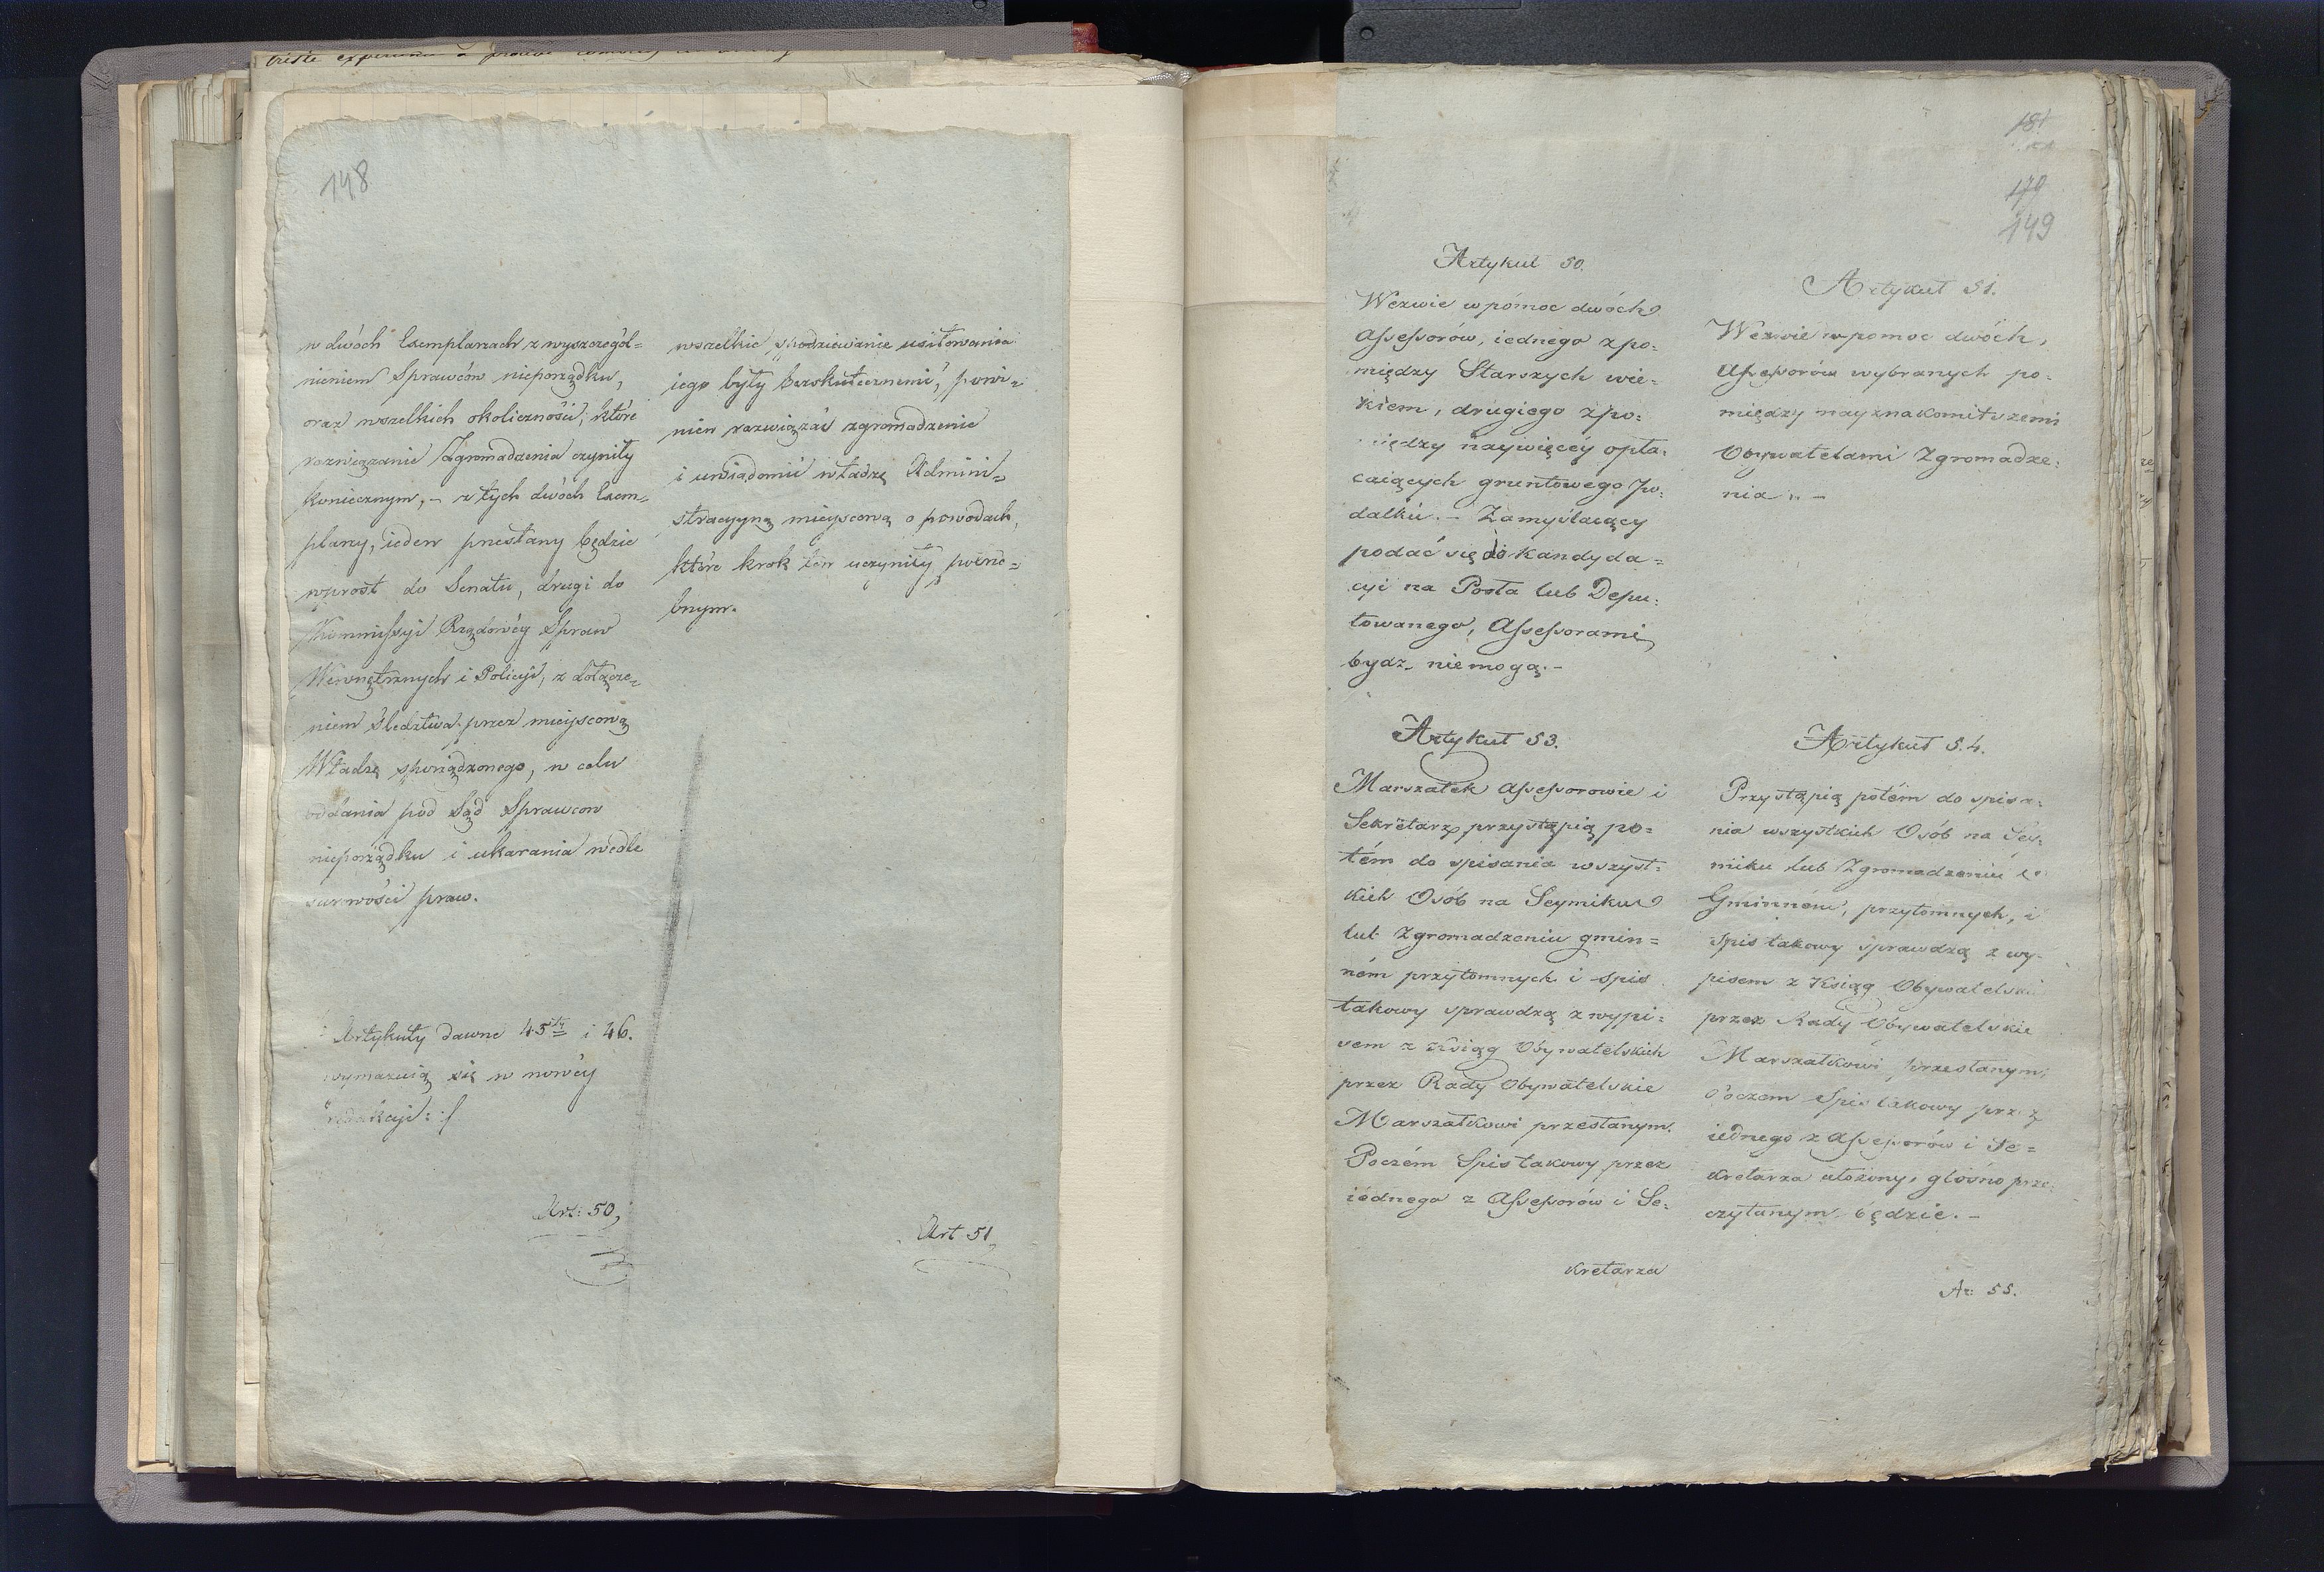 148
w dwóch Exemplarzach z wyszczegól=
nieniem Sprawców nieporządku,
oraz wszelkich okoliczności, które
rozwiązanie Zgromadzenia czyniły
koniecznym, - z tych dwóch Exem=
plarzy, ieden przesłany będzie
wprost do Senatu, drugi do
Kommissyi Rządowéy Spraw
Wewnętrznych i Policyi, z dołącze=
niem śledztwa przez mieyscową
Władzę sporządzonego, w celu
oddania pod Sąd Sprawcow
nieporządku i ukarania wedle
surowości praw.
Artykuły dawne 45ty i 46.
wymazuią się w nowéy
redakcyi :/
Art: 50,
wszelkie spodziewanie usiłowania
iego były bezskutecznemi, powi=
nien rozwiązać zgromadzenie
i uwiadomić władzę Admini=
stracyyną mieyscową o powodach,
które krok ten uczyniły potrze=
bnym.
Art 51
181
179
149
Artykuł 50.
Wezwie w pómoc dwóch
Assessorów, iednego z po=
między Starszych wie=
kiem, drugiego z po=
między naywięcéy opła=
caiących gruntowego Po=
datku. - Zamyślaiący
podać się do kandyda=
cyi na Posła lub Depu=
towanego, Assessorami
bydz niemogą. -
Artykuł 53.
Marszałek Assessorowie i
Sekretarz przystąpią po=
tém do spisania wszyst=
kich Osób na Seymiku
lub Zgromadzeniu gmin=
ném przytomnych i spis
takowy sprawdzą z wypi=
sem z Xsiąg Obywatelskich
przez Rady Obywatelskie
Marszałkowi przesłanym.
Poczém Spis takowy przez
iednego z Assessorów i Se=
kretarza
Artykuł 51.
Wezwie w pomoc dwóch,
Assessorów wybranych po=
między nayznakomitszemi
Obywatelami Zgromadze=
nia. -
Artykuł 54.
Przystąpią potém do spisa=
nia wszystkich Osób na Sey=
miku lub Zgromadzeniu
Gminném, przytomnych, i
spis takowy sprawdzą z wy-
pisem z Ksiąg Obywatelskich
przez Rady Obywatelskie
Marszałkowi przesłanym,
Poczem Spis takowy przez
iednego z Assessorów i Se=
kretarza ułożony, głośno prze=
czytanym będzie. -
Ar: 55.